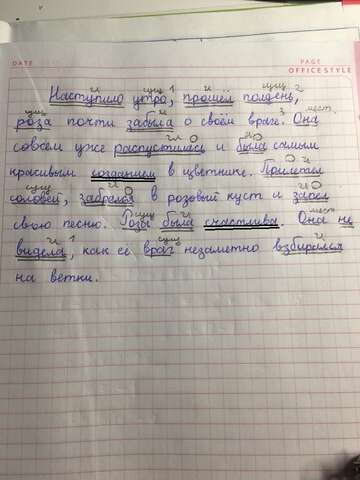 DATE PAGE
OFFICE STYLE
Наступило утро, прошёл полдень,
роза почти забыла о своём враге. Она
совсем уже распустилась и была самым
красивым созданием в цветнике. Прилетел
соловей, забрался в розовый куст и запел
свою песню. Роза была счастлива. Она не
видела, как её враг незаметно взбирался
на ветки.